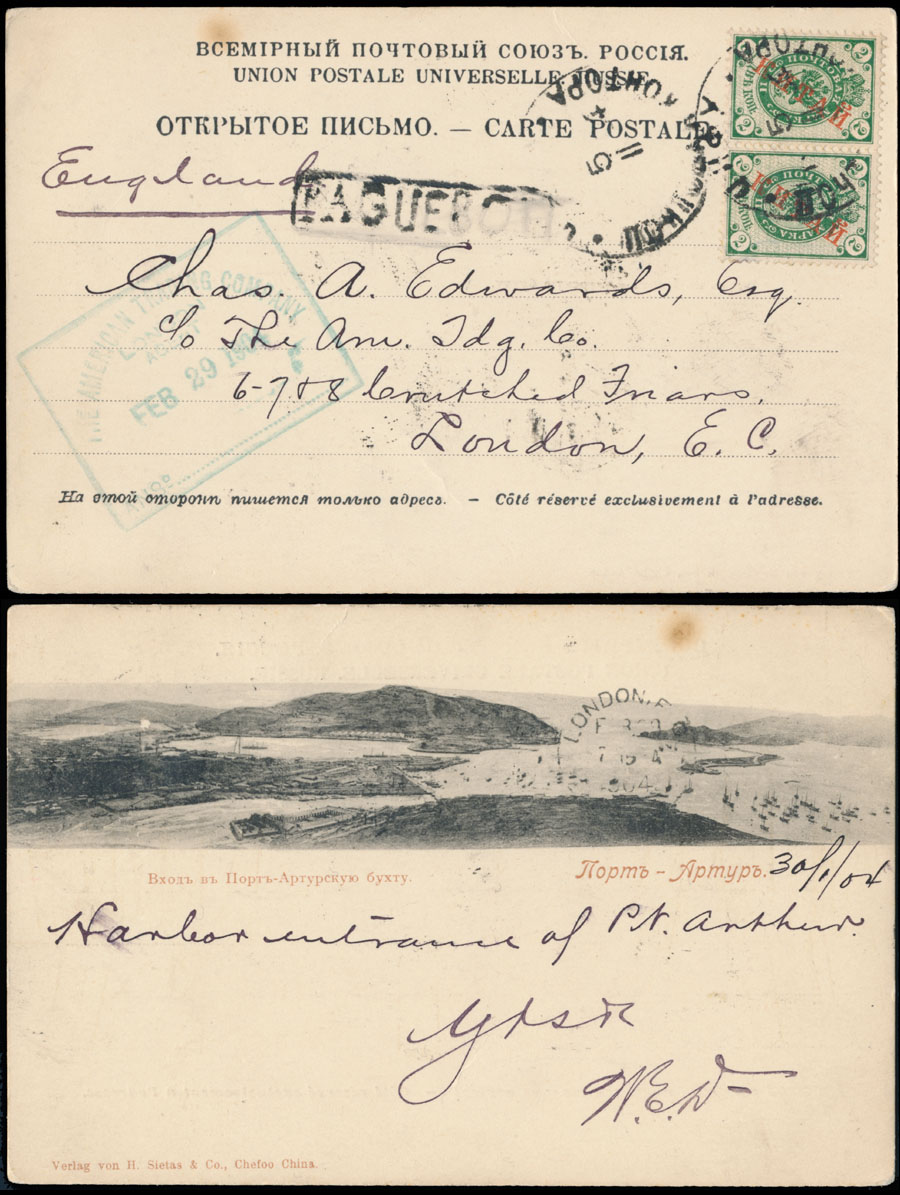 ВСЕМІРНЫЙ ПОЧТОВЫЙ СОЮЗЪ. РОССІЯ.
UNION POSTALE UNIVERSELLE. RUSSIE.
ОТКРЫТОЕ ПИСЬМО. — CARTE POSTALE
England
PAQUEBOT
КОНТОРА
КИТАЙ
КИТАЙ
THE AMERICAN TRADING COMPANY
LONDON
AGENCY
FEB 29 1904
ANSD
Chas. A. Edwards, Esq.
c/o The Am. Tdg. Co.
6-7 & 8 Crutched Friars,
London, E. C.
На этой сторонѣ пишется только адресъ. — Côté réservé exclusivement à l'adresse.
LONDON
Входъ въ Портъ-Артурскую бухту.
Портъ-Артуръ. 30/1/04
Harbor entrance of Pt. Arthur.
W.E.D
Verlag von H. Sietas & Co., Chefoo China.